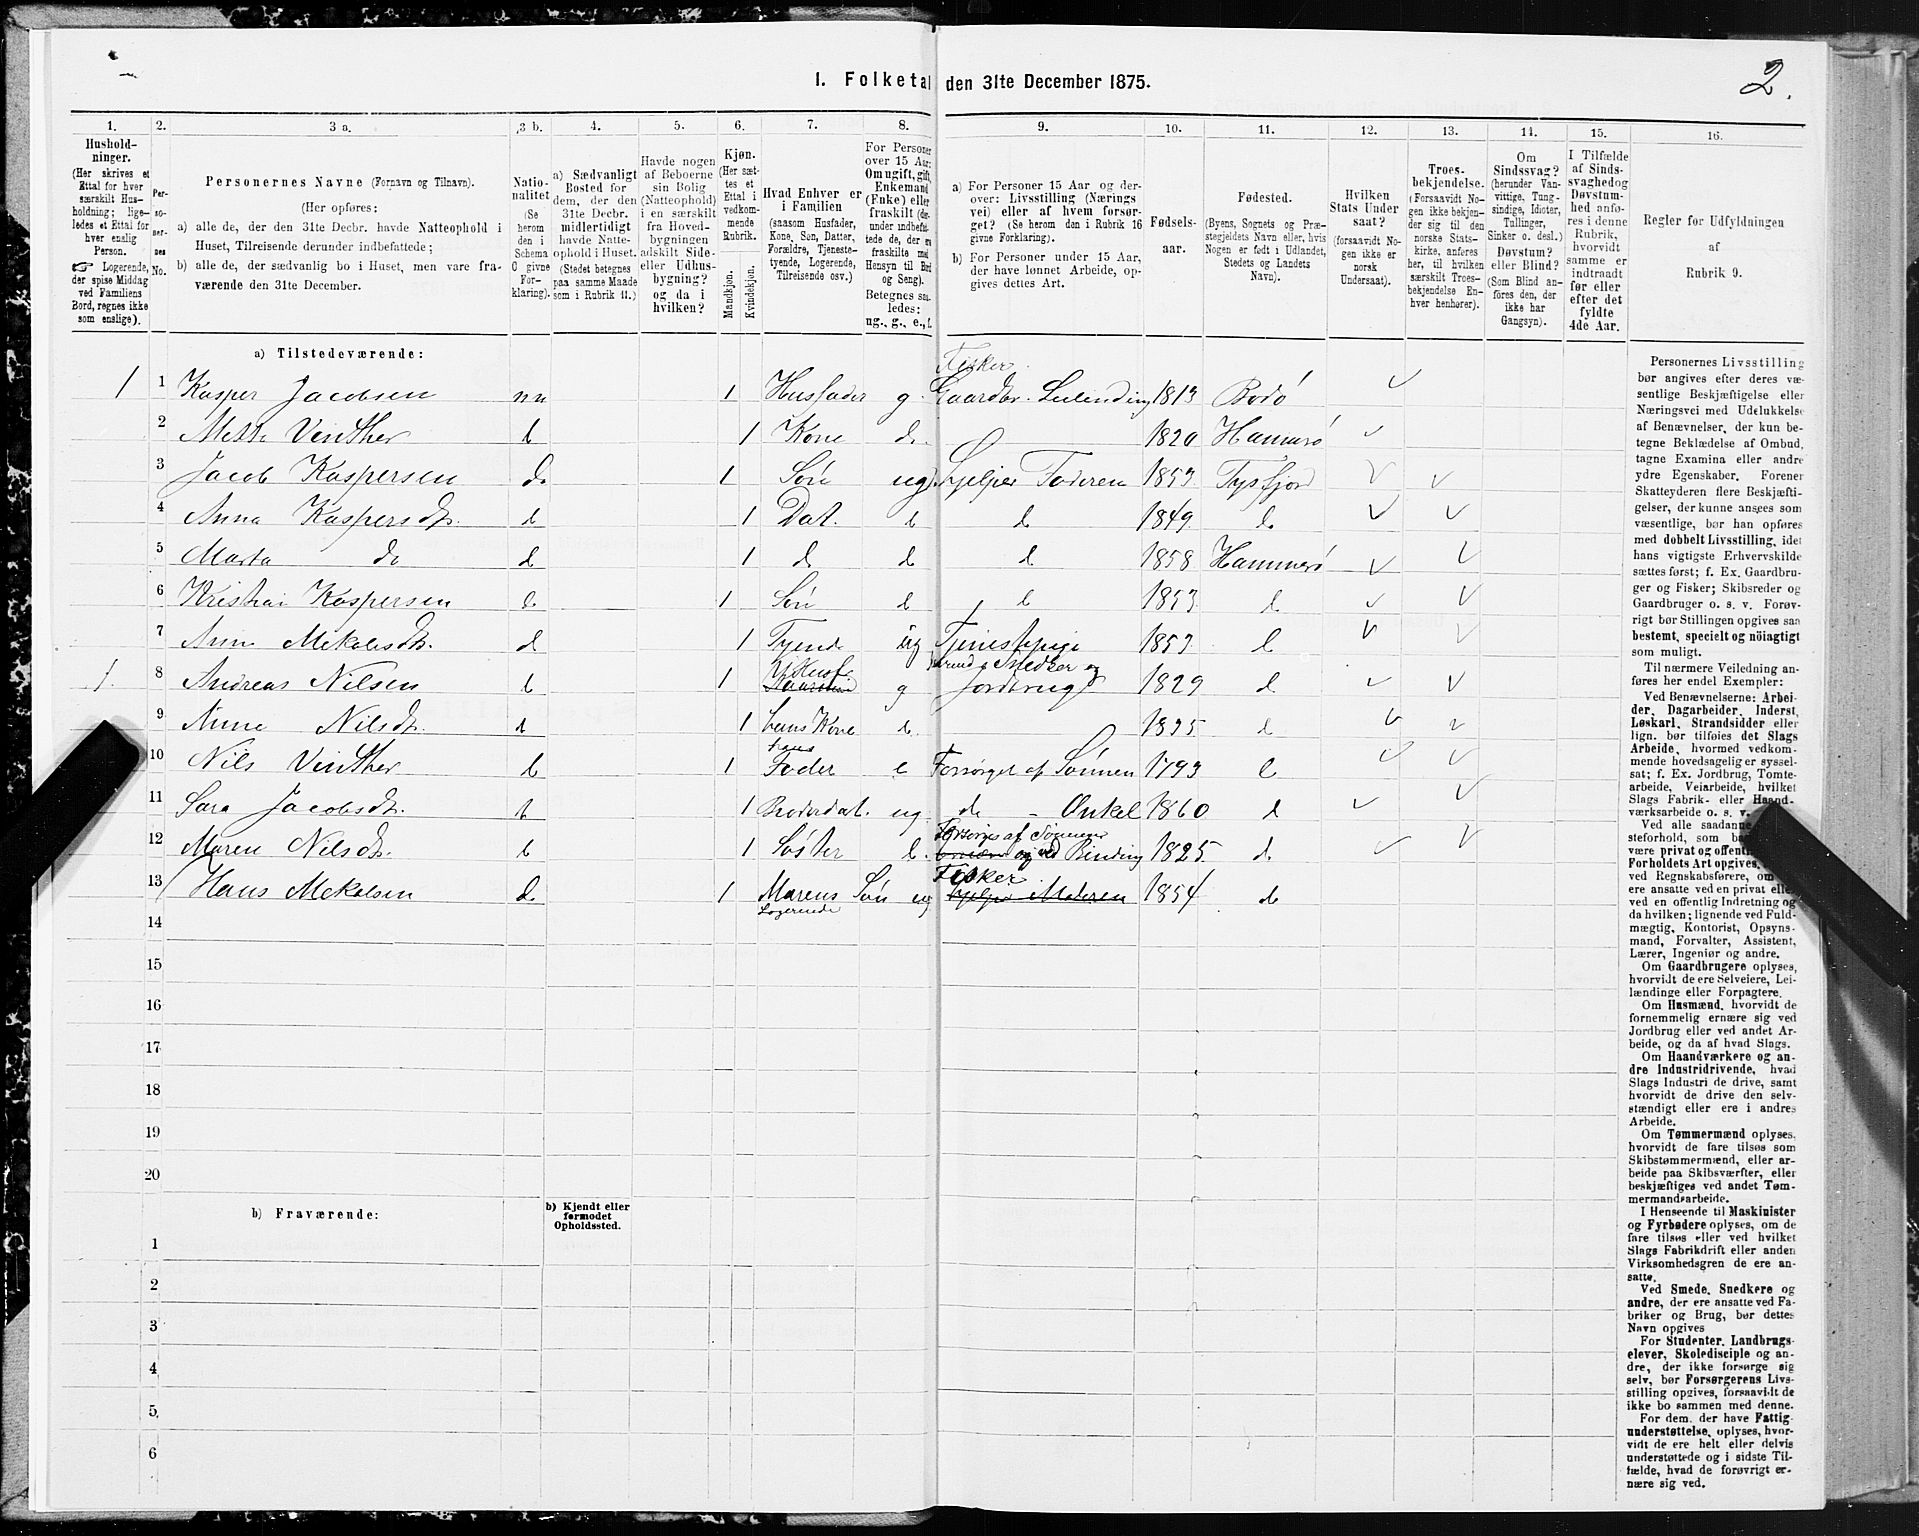 I. Folketal den 31te December 1875.
2.
1. 2. 3 a. 3 b. 4. 5. 6. 7. 8. 9. 10. 11. 12. 13. 14. 15. 16.
Hushold-
ninger.
(Her skrives et
Ettal for hver
særskilt Hus-
holdning; lige-
ledes et Ettal for
hver enslig
Person.
☞ Logerende,
der spise Middag
ved Familiens
Bord, regnes ikke
som enslige).
Per-
so-
ner-
nes
No.
Personernes Navne (Fornavn og Tilnavn).
(Her opføres:
a) alle de, der den 31te Decbr. havde Natteophold i
Huset, Tilreisende derunder indbefattede;
b) alle de, der sædvanlig bo i Huset, men vare fra-
værende den 31te December.
Natio-
nalitet
(Se
herom
den i
Schema
C givne
For-
klaring).
a) Sædvanligt
Bosted for
dem, der den
31te Decbr.
midlertidigt
havde Natte-
ophold i Huset.
(Stedet betegnes
paa samme Maade
som i Rubrik 11.)
Havde nogen
af Beboerne
sin Bolig
(Natteophold)
i en særskilt
fra Hoved-
bygningen
adskilt Side-
eller Udhus-
bygning?
og da i
hvilken?
Kjøn.
(Her sæt-
tes et
Ettal i
vedkom-
mende
Rubrik.
Mandkjøn.
Kvindekjøn.
Hvad Enhver er
i Familien
(saasom Husfader,
Kone, Søn, Datter,
Forældre, Tjeneste-
tyende, Logerende,
Tilreisende osv.)
For Personer
over 15 Aar:
Om ugift, gift,
Enkemand
(Enke) eller
fraskilt (der-
under indbefat-
tede de, der ere
fraskilte med
Hensyn til Bord
og Seng).
Betegnes saa-
ledes:
ug., g., e., f.
a) For Personer 15 Aar og der-
over: Livsstilling (Nærings
vei) eller af hvem forsør-
get? (Se herom den i Rubrik 16
givne Forklaring).
b) For Personer under 15 Aar,
der have lønnet Arbeide, op-
gives dettes Art.
Fødsels-
aar.
Fødested.
(Byens, Sognets og Præ-
stegjeldets Navn eller, hvis
Nogen er født i Udlandet,
Stedets og Landets
Navn).
Hvilken
Stats Under
saat?
(forsaavidt No-
gen ikke er
norsk
Undersaat).
Troes-
bekjendelse.
(Forsaavidt No-
gen ikke bekjen-
der sig til den
norske Stats-
kirke, anføres
her, til hvilken
særskilt Troes-
bekjendelse En-
hver henhører).
Om
Sindssvag?
(herunder Van-
vittige, Tung-
sindige, Idioter,
Tullinger,
Sinker o. desl.)
Døvstum?
eller Blind?
(Som Blind an-
føres den, der
ikke har
Gangsyn).
I Tilfælde
af Sinds-
svaghed og
Døvstum-
hed anfø-
res i denne
Rubrik,
hvorvidt
samme er
indtraadt
før eller
efter det
fyldte
4de Aar.
Regler for Udfyldningen
af
Rubrik 9.
a) Tilstedeværende:
Fisker
1 1 Kasper Jacobsen nn 1 Husfader g. Gaardbr. Leilending 1813 Bodø
2 Mette Vinther d 1 Kone d. 1820 Hammerø
3 Jacob Kaspersen do 1 Søn ug. Hjelper Faderen 1853 Tysfjord
4 Anna Kaspersdtr. d 1 Dat. d d 1849 d
5 Marta do d 1 d d d 1858 Hammerø
6 Kristian Kaspersen d 1 Søn d d 1853 d
7 Ane Mikalsdtr. d 1 Tyende ug Tjenestepige 1853 d
Husf.
1 8 Andreas Nilsen d 1 g Snedker og Jordbrug 1829 d
9 Anne Nilsdtr. d 1 hans Kone d. 1835 d
hans
10 Nils Vinther d 1 Fader e Forsørget af Sønnen 1793 d
11 Sara Jacobsdtr. d 1 Broderdat. ug. do - Onkel 1860 d
Forsørges af Sønnen
12 Maren Nilsdtr. d 1 Søster d. og ved Binding 1825 d
Fisker
13 Hans Mekalsen d 1 Marens Søn ug hjelper Moderen 1854 d
Logerende
14
15
16
17
18
19
20
b) Fraværende:
b) Kjendt eller
formodet
Opholdssted.
1
2
3
4
5
6
Personernes Livsstilling
bør angives efter deres væ-
sentlige Beskjæftigelse eller
Næringsvei med Udelukkelse
af Benævnelser, der kun be-
tegne Beklædelse af Ombud,
tagne Examina eller andre
ydre Egenskaber. Forener
Skatteyderen flere Beskjæfti-
gelser, der kunne ansees som
væsentlige, bør han opføres
med dobbelt Livsstilling, idet
hans vigtigste Erhvervskilde
sættes først; f. Ex. Gaardbru-
ger og Fisker; Skibsreder og
Gaardbruger o. s. v. Forøv-
rigt bør Stillingen opgives saa
bestemt, specielt og nøiagtigt
som muligt.
Til nærmere Veiledning an-
føres her endel Exempler:
Ved Benævnelserne: Arbei-
der, Dagarbeider, Inderst,
Løskarl, Strandsidder eller
lign. bør tilføies det Slags
Arbeide, hvormed vedkom-
mende hovedsagelig er syssel-
sat; f. Ex. Jordbrug, Tomte-
arbeide, Veiarbeide, hvilket
Slags Fabrik- eller Haand-
værksarbeide o. s. v.
Ved alle saadanne
steforhold, som
være privat og offentl
Forholdets Art opgives,
ved Regnskabsførere, om
ere ansatte ved en privat eller
ved en offentlig Indretning og
da hvilken; lignende ved Fuld-
mægtig, Kontorist, Opsyns-
mand, Forvalter, Assistent,
Lærer, Ingeniør og andre.
Om Gaardbrugere oplyses,
hvorvidt de ere Selveiere, Lei-
lændinge eller Forpagtere.
Om Husmænd, hvorvidt de
fornemmelig ernære sig ved
Jordbrug eller ved andet Ar-
beide, og da af hvad Slags.
Om Haandværkere og an-
dre Industridrivende, hvad
Slags Industri de drive, samt
hvorvidt de drive den selv-
stændigt eller ere i andres
Arbeide.
Om Tømmermænd oplyses,
hvorvidt de fare tilsøs som
Skibstømmermænd, eller ar-
beide paa Skibsværfter, eller
beskjæftiges ved andet Tøm-
mermandsarbeide.
I Henseende til Maskinister
og Fyrbødere oplyses, om de
fare tilsøs eller ved hvilket
Slags Fabrikdrift eller anden
Virksomhedsgren de ere an-
satte.
Ved Smede, Snedkere og
andre, der ere ansatte ved Fa-
briker og Brug, bør dettes
Navn opgives
For Studenter, Landbrugs-
elever, Skoledisciple og an-
dre, der ikke forsørge sig
selv, bør Forsørgerens Livs-
stilling opgives, forsaavidt de
ikke bo sammen med denne.
For dem, der have Fattig-
understøttelse, oplyses, hvor-
vidt de ere helt eller delvis
understøttede og i sidste Til-
fælde, hvad de forøvrigt er-
nære sig ved.